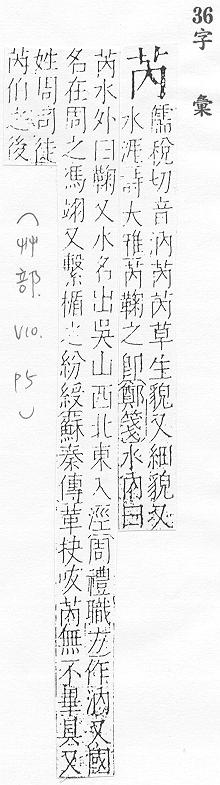 36
字彙
芮
儒稅切音汭芮芮草生貌又細貌又
水涯詩大雅芮鞫之卽鄭箋水內曰
芮水外曰鞫又水名出吳山西北東入涇周禮職方作汭又國
名在周之馮翊又繫楯之紛綬蘇秦傳革抉㕹芮無不畢具又
姓周司徒
芮伯之後
(艸部. V10. P5)